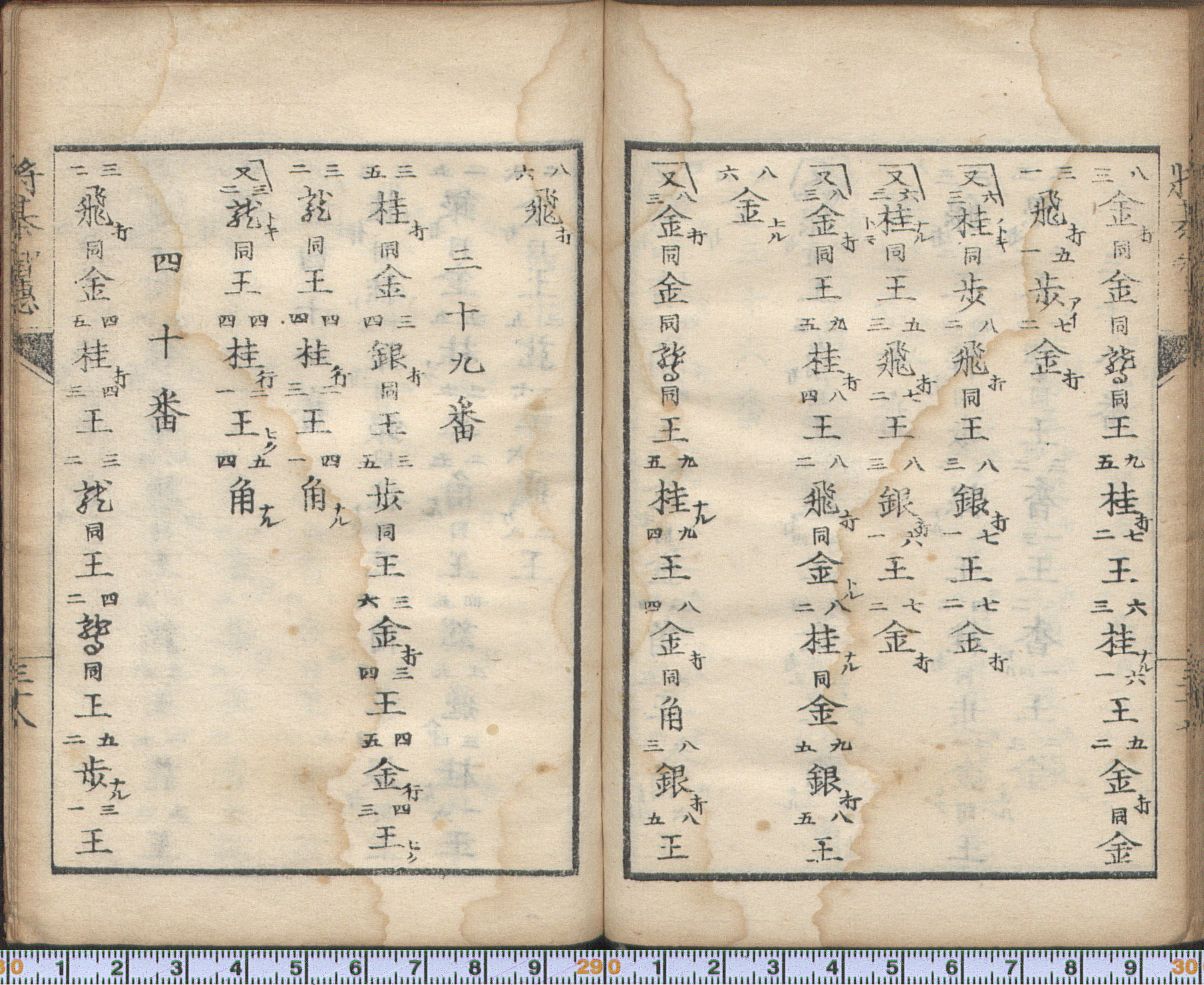 八三金打同金同龍馬同王九五桂打七二王六三桂ナル六一王五二金打同金
三一飛打五一歩アイ七二金打
又六三桂トキ同歩八二飛打同王八三銀打七一王七二金打
又六三桂ナルトキ同王五三飛打七二王八三銀打六一王七二金打
又八三金打同王九五桂打八四王八二飛打同金上ル八二桂ナル同金九五銀打八五王
八六金上ル
又八三金打同金同龍馬同王九五桂ナル九四王八四金打同角八三銀打八五王
八六飛打
三十九番
三五桂打同金三四銀打同王三五歩同王三六金打三四王四五金行四三王ヒク
三二龍同王四四桂行二三王四一角ナル
又三二龍トキ同王四四桂行二一王ヒク五四角ナル
四十番
三二飛打同金四五桂打四三王三二龍同王四二龍馬同王五二歩ナル三一王
将棊智恵
三十八